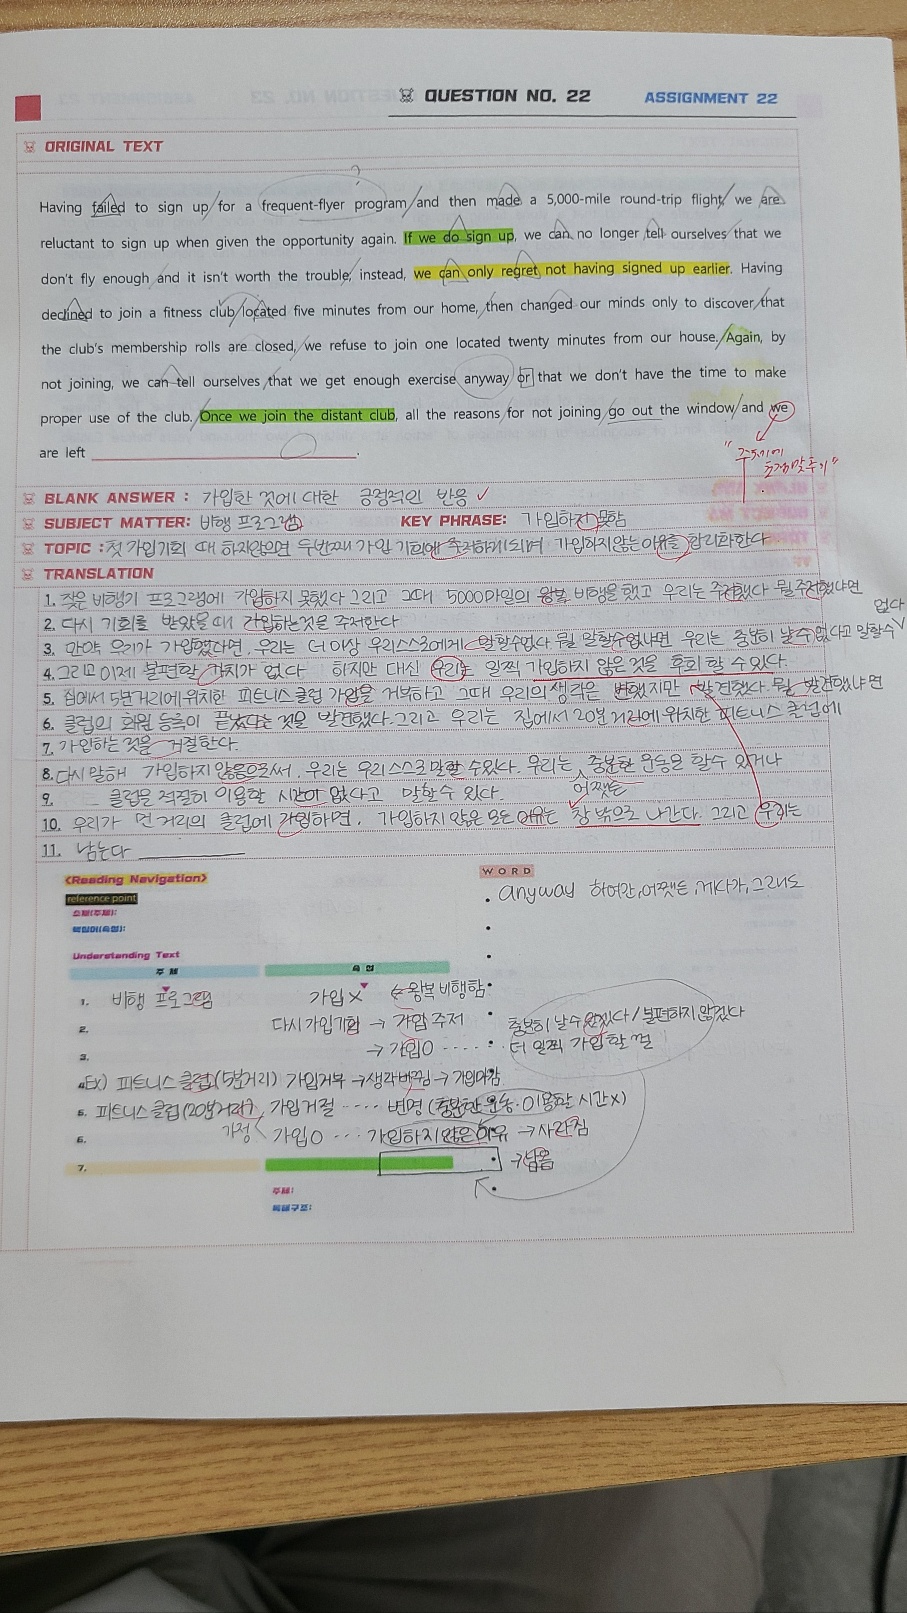 QUESTION NO. 22 ASSIGNMENT 22
ORIGINAL TEXT
?
Having failed to sign up for a frequent-flyer program and then made a 5,000-mile round-trip flight, we are
reluctant to sign up when given the opportunity again. If we do sign up, we can no longer tell ourselves that we
don't fly enough and it isn't worth the trouble, instead, we can only regret not having signed up earlier. Having
declined to join a fitness club located five minutes from our home, then changed our minds only to discover that
the club's membership rolls are closed, we refuse to join one located twenty minutes from our house. Again, by
not joining, we can tell ourselves that we get enough exercise anyway or that we don't have the time to make
proper use of the club. Once we join the distant club, all the reasons for not joining go out the window and we
are left
"주체에 초점맞추기"
BLANK ANSWER : 가입한 것에 대한 긍정적인 반응
SUBJECT MATTER: 비행 프로그램 KEY PHRASE: 가입하지 못함
TOPIC : 첫 가입기회 때 하지않으면 두번째 가입 기회에 주저하게되며 가입하지않는 이유를 합리화한다
TRANSLATION
1. 잦은 비행기 프로그램에 가입하지 못했다 그리고 그때 5000마일의 왕복 비행을 했고 우리는 주저했다 뭘 주저했냐면
2. 다시 기회를 받았을 때 가입하는것을 주저한다
3. 만약 우리가 가입했다면, 우리는 더 이상 우리스스로에게 말할수없다 뭘 말할수없냐면 우리는 충분히 날수없다고 말할수 없다
4. 그리고 이제 불편할 가치가 없다 하지만 대신 우리는 일찍 가입하지 않은 것을 후회 할 수 있다.
5. 집에서 5분거리에 위치한 피트니스 클럽 가입을 거부하고 그때 우리의 생각은 변했지만 발견했다. 뭘 발견했냐면
6. 클럽의 회원 등록이 끝났다는 것을 발견했다. 그리고 우리는 집에서 20분 거리에 위치한 피트니스 클럽에
7. 가입하는 것을 거절한다.
8. 다시 말해 가입하지 않음으로써, 우리는 우리스스로 말할 수있다. 우리는 어쨌든 충분한 운동은 할수 있거나
9. 클럽을 적절히 이용할 시간이 없다고 말할수 있다.
10. 우리가 먼 거리의 클럽에 가입하면, 가입하지 않은 모든 이유는 창 밖으로 나간다. 그리고 우리는
11. 남는다
<Reading Navigation>
reference point
소재(주제):
핵심어(속성):
Understanding Text
주 체 속 성
WORD
anyway 하여간, 어쨌든, 게다가, 그래도
1. 비행 프로그램 가입X ← 왕복 비행함
2. 다시 가입기회 → 가입 주저 충분히 날수없겠다 / 불편하지 않겠다
3. → 가입O ····· 더 일찍 가입 할 껄
4. Ex) 피트니스 클럽(5분거리) 가입거부 → 생각바뀜 → 가입마감
5. 피트니스 클럽(20분거리), 가입거절 ···· 변명 (충분한 운동·이용할 시간X)
6. 가정 가입O ··· 가입하지않은 이유 → 사라짐
7. → 남음
주제:
독해구조: